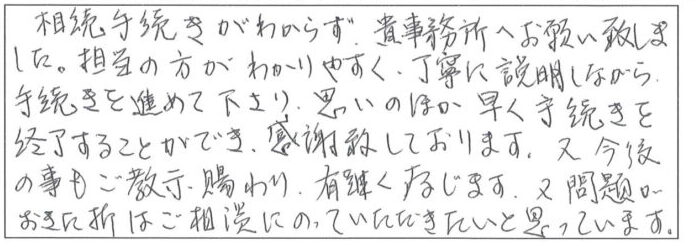 相続手続きがわからず、貴事務所へお願い致しま
した。担当の方がわかりやすく、丁寧に説明しながら、
手続きを進めて下さり、思いのほか早く手続きを
終了することができ、感謝致しております。又今後
の事もご教示賜わり、有難く存じます。又問題が
おきた折はご相談にのっていただきたいと思っています。